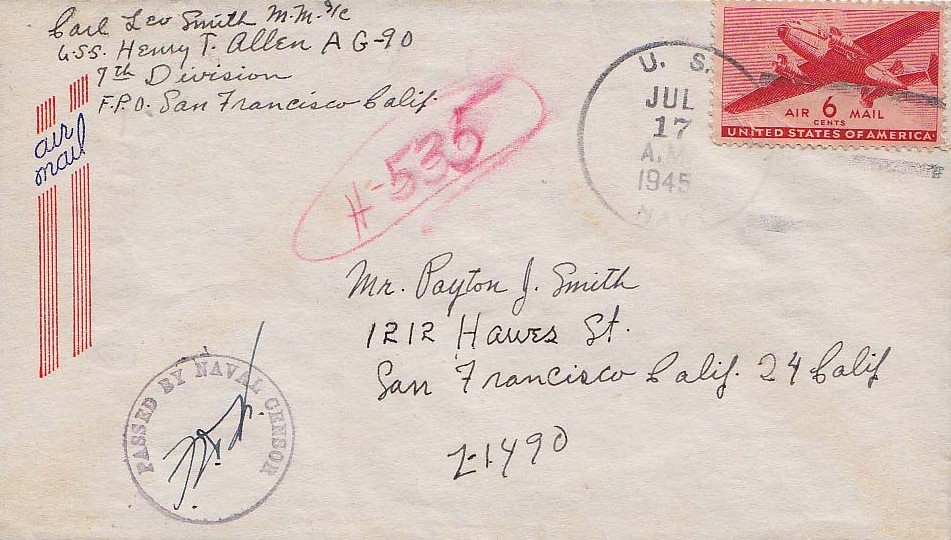 Carl Leo Smith M.M. 3/c
U.S.S. Henry T. Allen AG-90
7th Division
F.P.O. San Francisco Calif.
air
mail
H-535
U. S.
JUL
17
A.M.
1945
NAVY
AIR 6 MAIL
CENTS
UNITED STATES OF AMERICA
Mr. Payton J. Smith
1212 Hawes St.
San Francisco Calif. 24 Calif
PASSED BY NAVAL CENSOR
Z-1490